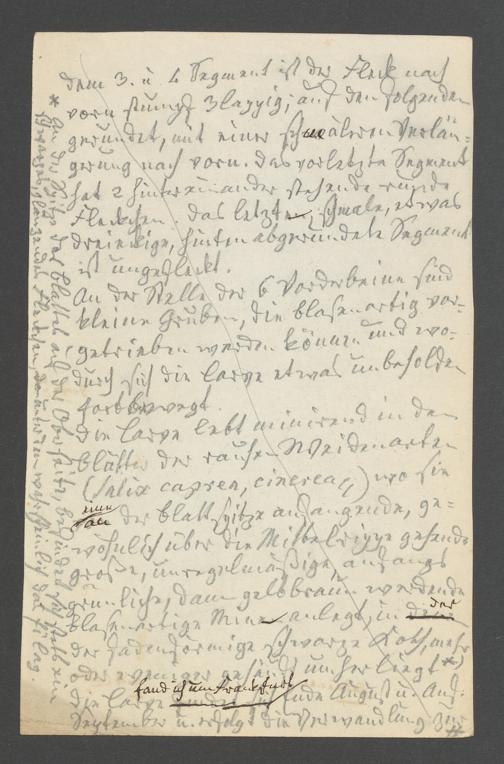 dem 3. u. 4 Segment ist der Fleck nach
vorn stumpf 3lappig; auf den folgenden
gerundet, mit einer schmäleren Verlän-
gerung nach vorn. das vorletzte Segment
hat 2 hintereinander stehende runde
Fleckchen. das letzte, schmale, etwas
dreieckige, hinten abgerundete Segment
ist ungefleckt.
An der Stelle der 6 Vorderbeine sind
kleine Gruben, die blasenartig vor-
getrieben werden können und wo-
durch sich die Larve etwas unbeholfen
fortbewegt.
Die Larve lebt minirend in den
Blätter der rauhen Weidenarten
(Salix caprea, cinerea,) wo sie
eine
an der Blattspitze anfangende, ge-
wöhnlich über die Mittelrippe gehende
große, unregelmäßige anfangs
grünliche, dann gelbbraun werdende
blasenartige Mine anlegt, in der
der fadenförmige schwarze Koth, mehr
oder weniger gehäuft umher liegt *)
die Larve fand ich um Ende August u. Anf.
September u. erfolgt die Verwandlung zur
* An der Spitze des Blattes auf der Oberseite, befindet sich stets ein
schwarzes glänzendes Fleckchen, darunter wahrscheinlich das Ei lag